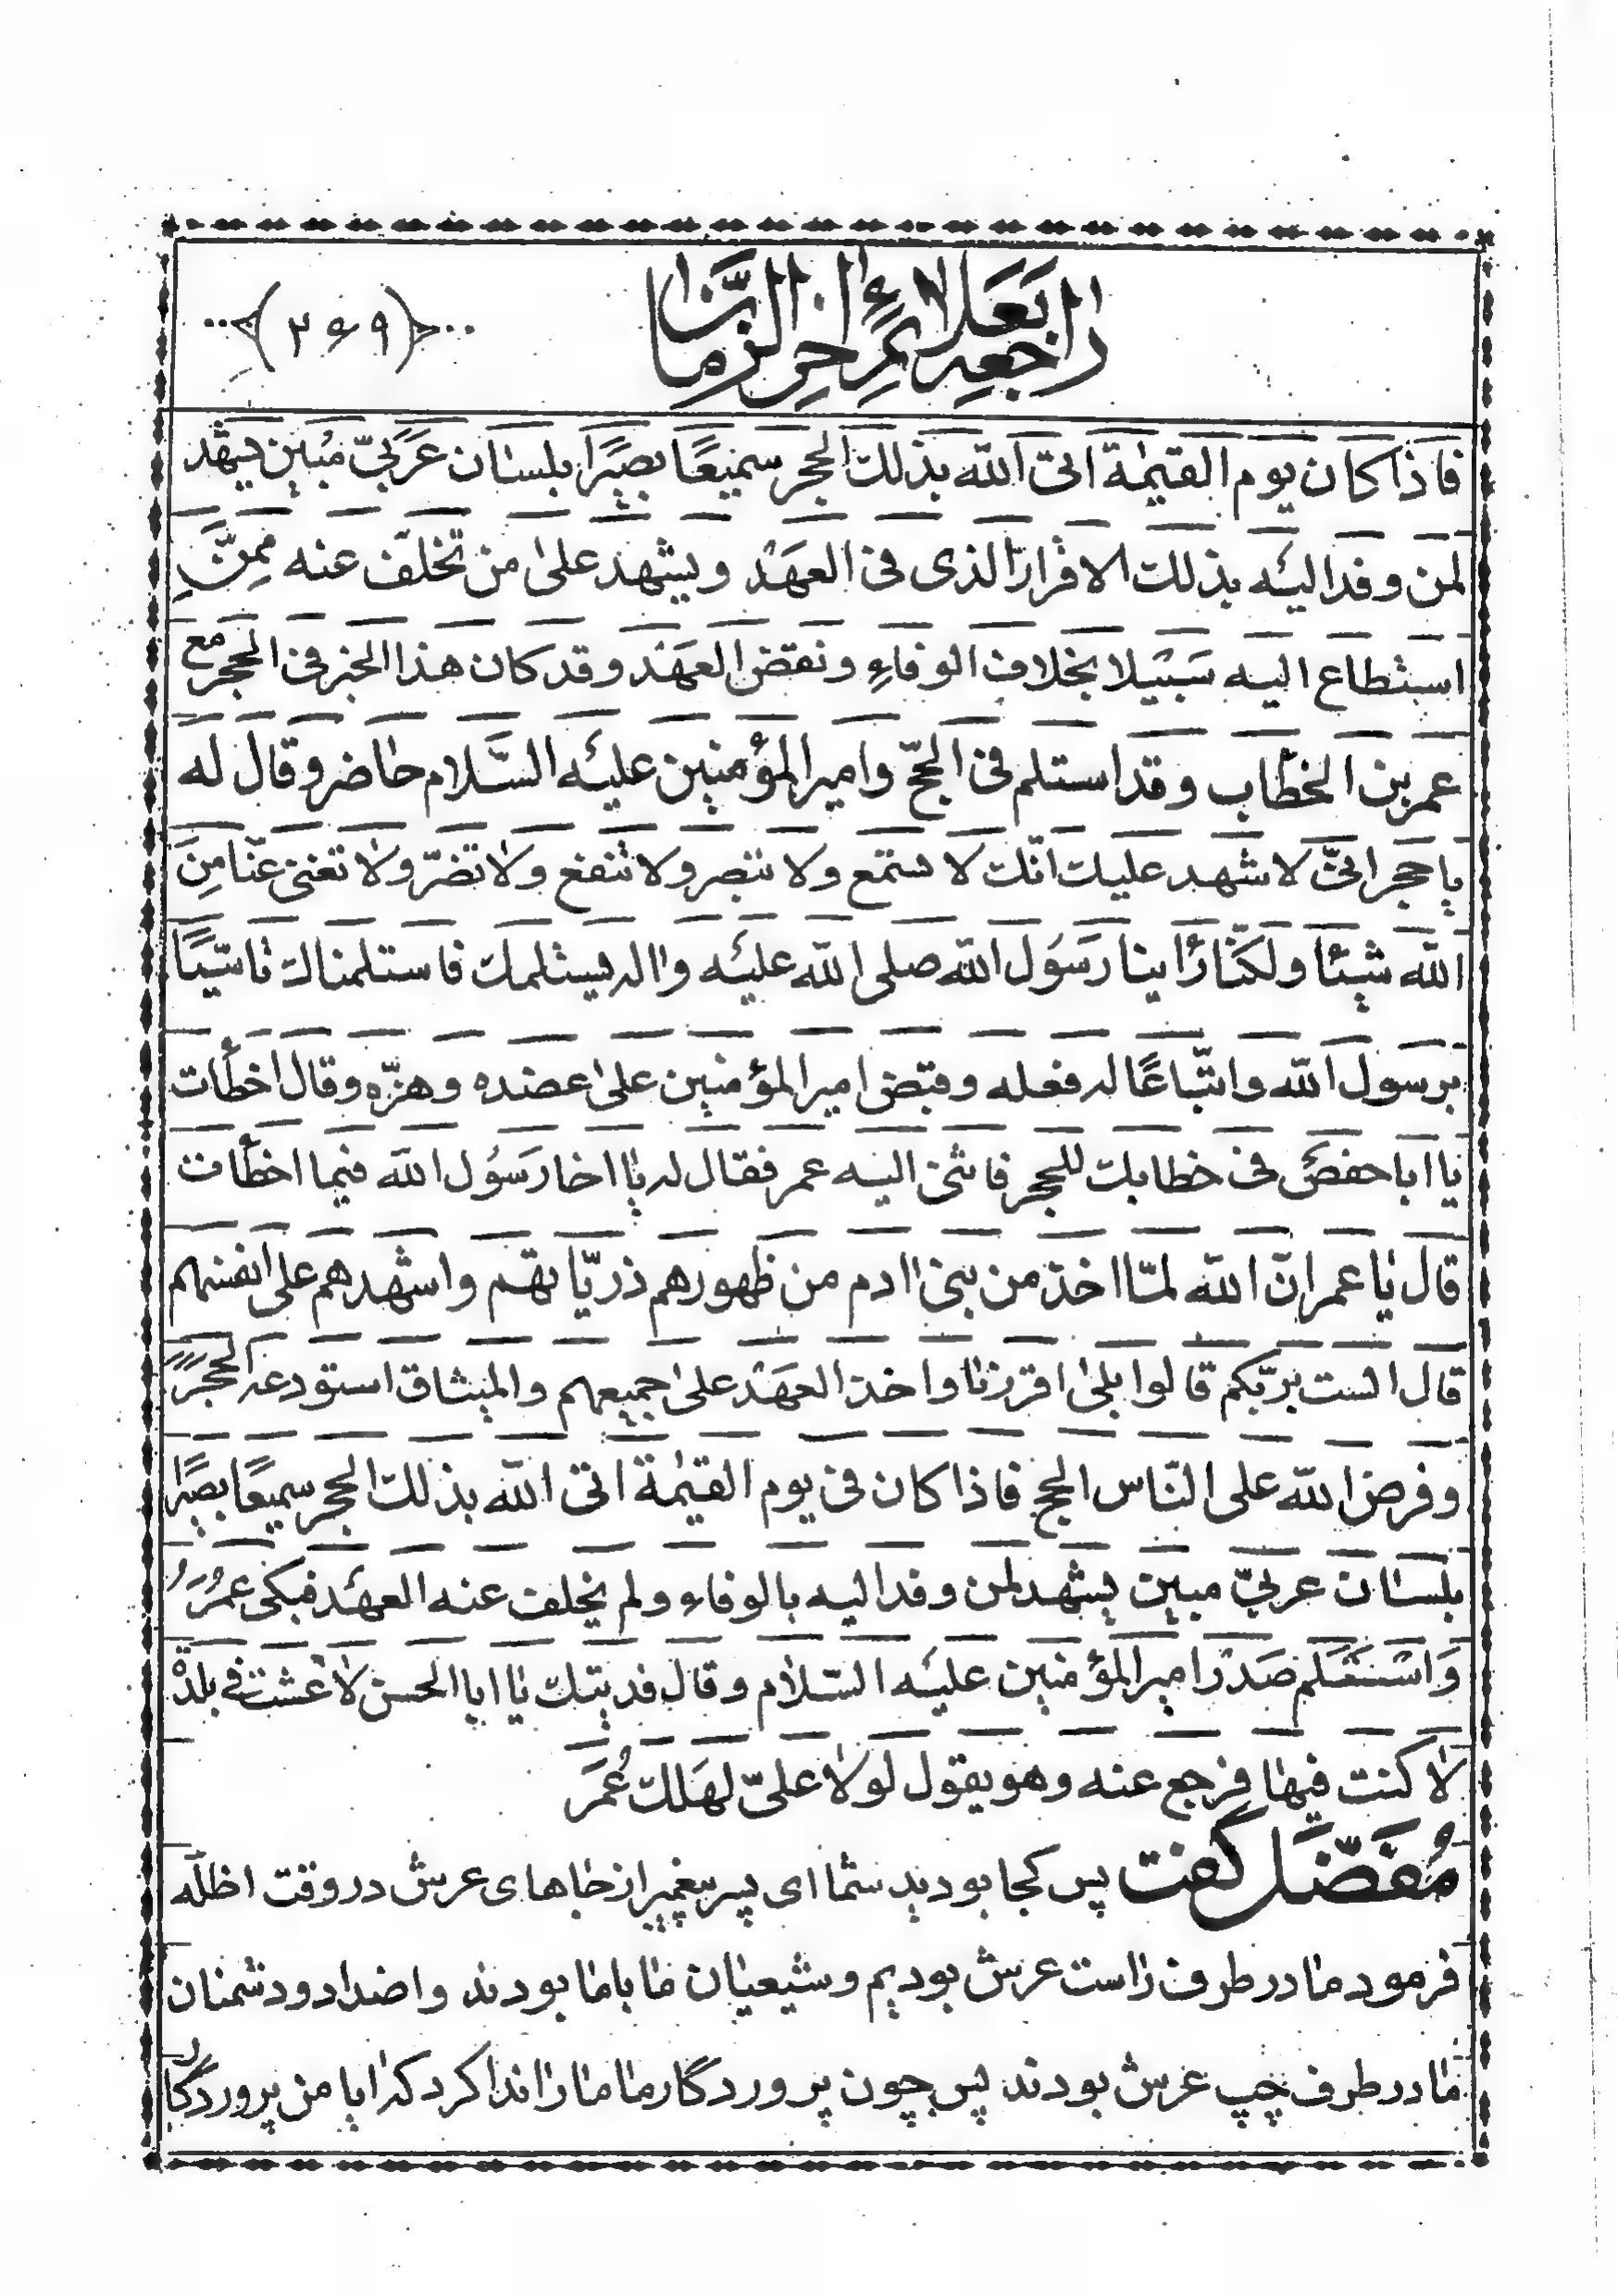 راجعه بعلائم اخر الزمان
(۲۶۹)
فاذا كان يوم القيمة اتى الله بذلك الحجر سميعًا بصيرًا بلسان عَرَبىّ مُبين يشهد
لمن وفد اليه بذلك الاقرار الذى فى العهَد ويشهد على من تخلّف عنه مِمنّ
استطاع اليه سَبيلا بخلاف الوفاءِ ونقض العهَد وقد كان هذا الخبر فى الحجر مع
عمر بن الخطّاب وقد استلم فى الحجّ وامير المؤمنين عليه السَّلام حاضر وقال له
يا حَجر انّى لاشهد عليك انّك لا تسمع ولا تبصر ولا تنفع ولا تضرّ ولا تغنى عنّا مِنَ
الله شيئا ولكنّا رَاينا رَسَول الله صلى الله عليه واله يستلمك فاستلمناك تاسّيًا
برسول الله واتّباعًا له فعله وقبض امير المؤمنين على عضده وهزّه وقال اخطأت
يا ابا حفص فى خطابك للحجر فاثنى اليه عمر فقال له يا اخا رَسُول الله فيما اخطأت
قال يا عمر انّ الله لمّا اخذ من بنى ادم من ظهورهم ذريّاتهم واشهدهم على انفسهم
قال الست برّبكم قالوا بلى اقررنا واخذ العهَد على جميعهم والميثاق استودعه الحجَر
وفرض الله على النّاس الحج فاذا كان فى يوم القيمة اتى الله بذلك الحجر سميعًا بصيرًا
بلسان عربىّ مبين يشهد لمن وفد اليه بالوفاء ولم يخلف عنه العهد فبكى عمُرَ
وَاستَلم صَدر امير المؤمنين عليه السّلام وقال فديتك يا ابا الحسن لا عشت فى بلدة
لا كنت فيها فرجع عنه وهو يقول لولا علىّ لهَلك عُمَر
مُفَضّل گفت پس كجا بوديد شما اى پسر پيغمبر از جاهاى عرش در وقت اظلّه
فرمود ما در طرف راست عرش بوديم وشيعيان ما با ما بودند واضداد ودشمنان
ما در طرف چپ عرش بودند پس چون پروردگار ما ما را ندا كرد كه ايا من پروردگار